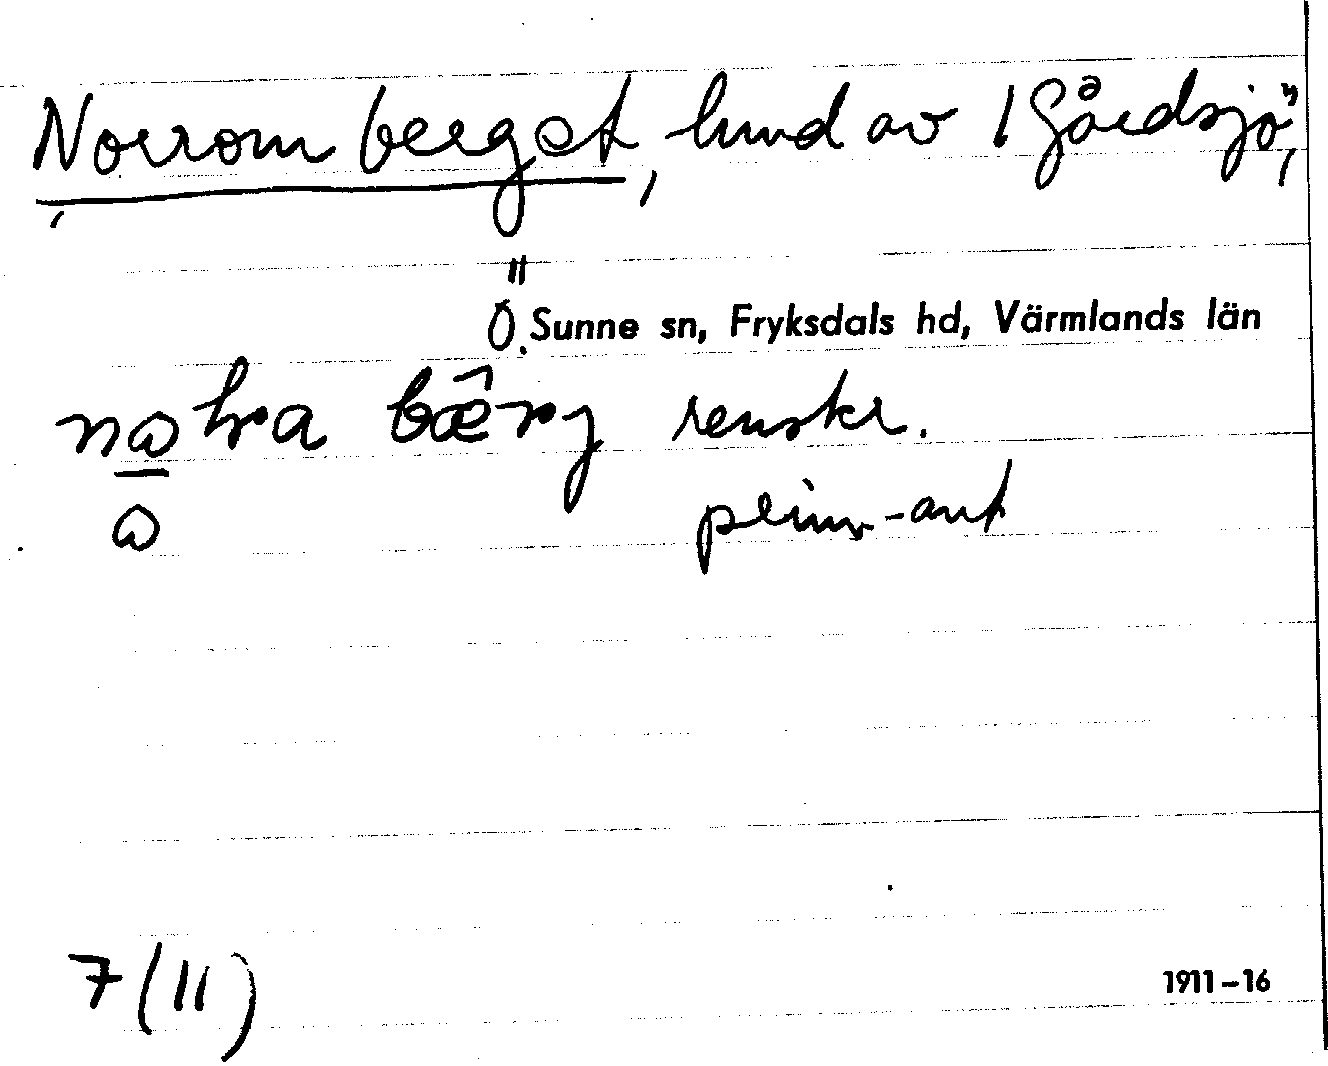 Norrom berget, hmd av 1 Gårdsjö,
Ö. Sunne sn, Fryksdals hd, Värmlands län
renskr.
prim-ant
7 (11)
1911-16